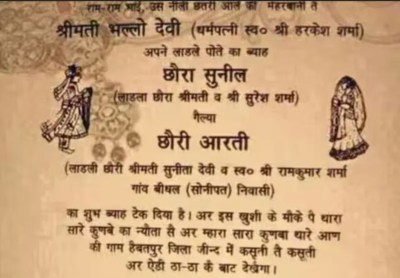 राम-राम भाई, उस नीली छतरी आले की मेहरबानी तै
श्रीमती भल्लो देवी (धर्मपत्नी स्व० श्री हरकेश शर्मा)
अपने लाडले पोते का ब्याह
छौरा सुनील
(लाडला छोरा श्रीमती व श्री सुरेश शर्मा)
गैल्या
छौरी आरती
(लाडली छोरी श्रीमती सुनीता देवी व स्व० श्री रामकुमार शर्मा
गांव बीधल (सोनीपत) निवासी)
का शुभ ब्याह टेक दिया है। अर इस खुशी के मौके पै थारा
सारे कुणबे का न्यौता सै अर म्हारा सारा कुणबा थारे आण
की गाम हैबतपुर जिला जीन्द में कसूती तै कसूती
अर ऐडी ठा-ठा कै बाट देखेगा।